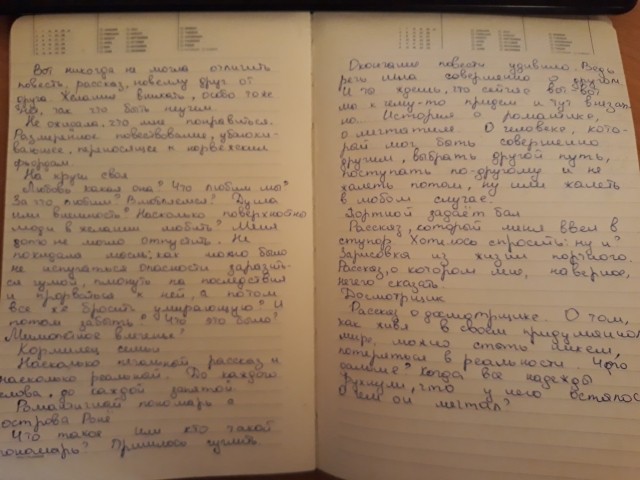 Вот никогда не могла отличить
повесть, рассказ, новеллу друг от
друга. Желания вникать, особо тоже
нет, так что быть неучем.
Не ожидала, что мне понравится.
Размеренное повествование, убаюки-
вающее, переносящее к норвежским
фьордам.
На круги своя
Любовь какая она? Что любим мы?
За что любим? Влюбляемся? Душа
или внешность? Насколько поверхностно
люди в желании любить? Меня
долго не могло отпустить. Не
покидала мысль: как можно было
не испугаться опасности зарази-
ся чумой, плюнуть на последствия
и прорваться к ней, а потом
все же бросить умирающую? И
потом забыть? Что это было?
Мимолётное влечение?
Кормилец семьи
Насколько печальный рассказ и
насколько реальный. До каждого
слова, до каждой запятой.
Романтичный пономарь с
острова Рыне
Что такое или кто такой
пономарь? Пришлось гуглить.
Окончание повести удивило. Ведь
речь шла совершенно о другом
И ты ждешь, что сейчас вот-вот
мы к чему-то придем и тут внезап
но... История о романтике,
о мечтателе. О человеке, кото-
рый мог быть совершенно
другим, выбрать другой путь,
поступать по-другому и не
жалеть потом, ну или жалеть
в любом случае.
Портной задаёт бал
Рассказ, который меня ввел в
ступор. Хотелось спросить: ну и?
Зарисовка из жизни портного.
Рассказ, о котором мне, наверное,
нечего сказать.
Досмотрщик
Рассказ о досмотрщике. О том,
как живя в своем придуманном
мире, можно стать никем,
потеряться в реальности. Что
дальше? Когда все надежды
рухнули, что у него осталось
О чем он мечтал?